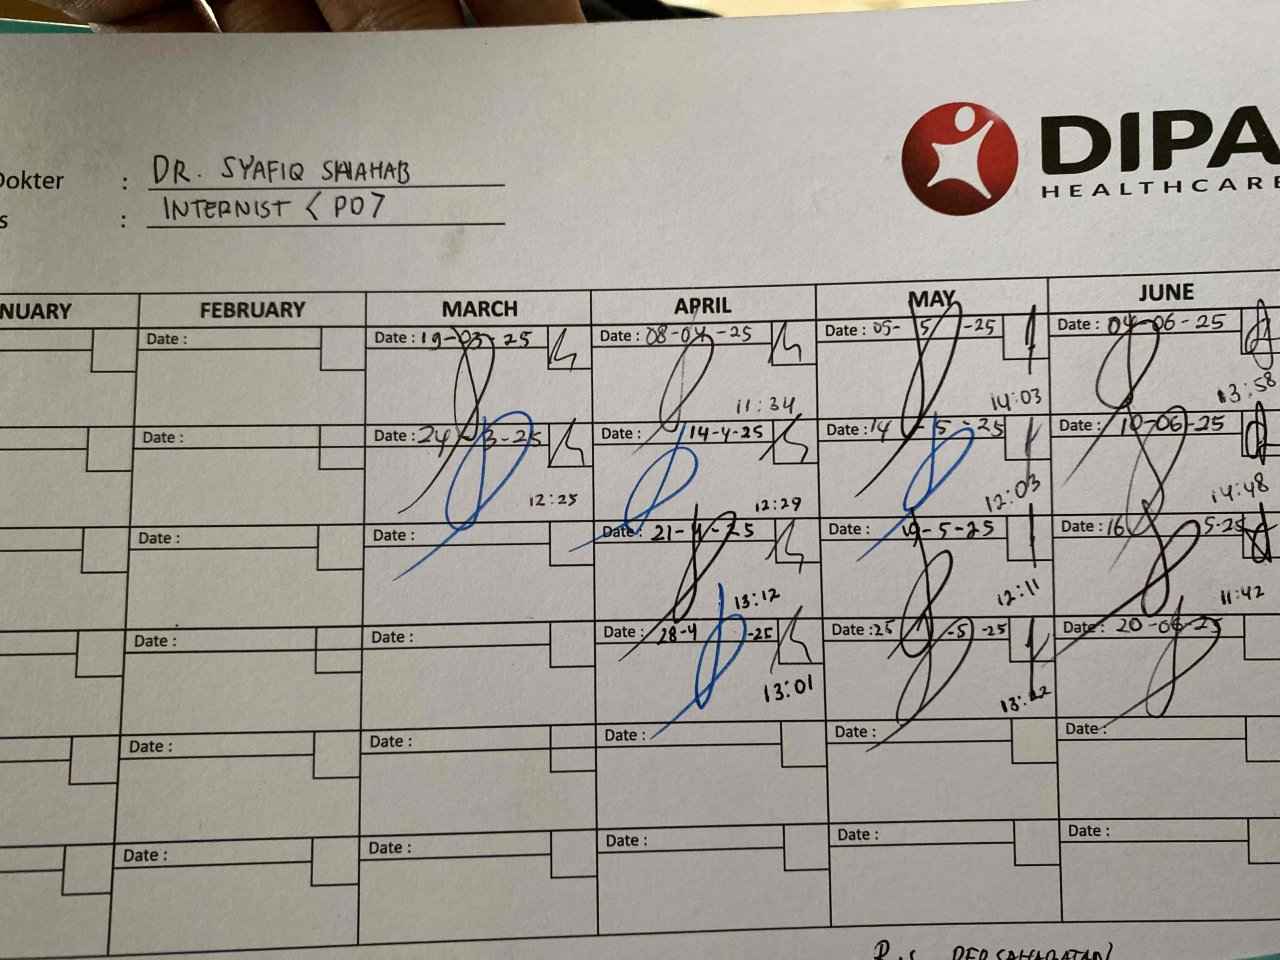 DIPA
HEALTHCARE
Dokter : DR. SYAFIQ SHAHAB
s : INTERNIST < PO >
NUARY FEBRUARY MARCH APRIL MAY JUNE
Date : Date : 19-03-25 Date : 08-04-25 Date : 05-5-25 Date : 04-06-25
11:34 14:03 13:58
Date : Date : 24-3-25 Date : 14-4-25 Date : 14-5-25 Date : 10-06-25
12:25 12:29 12:03 14:48
Date : Date : Date : 21-4-25 Date : 19-5-25 Date : 16 5-25
13:12 12:11 11:42
Date : Date : Date : 28-4-25 Date : 25-5-25 Date : 20-06-25
13:01
Date : Date : Date : Date : Date :
Date : Date : Date : Date : Date :
R.S PERSAHABATAN